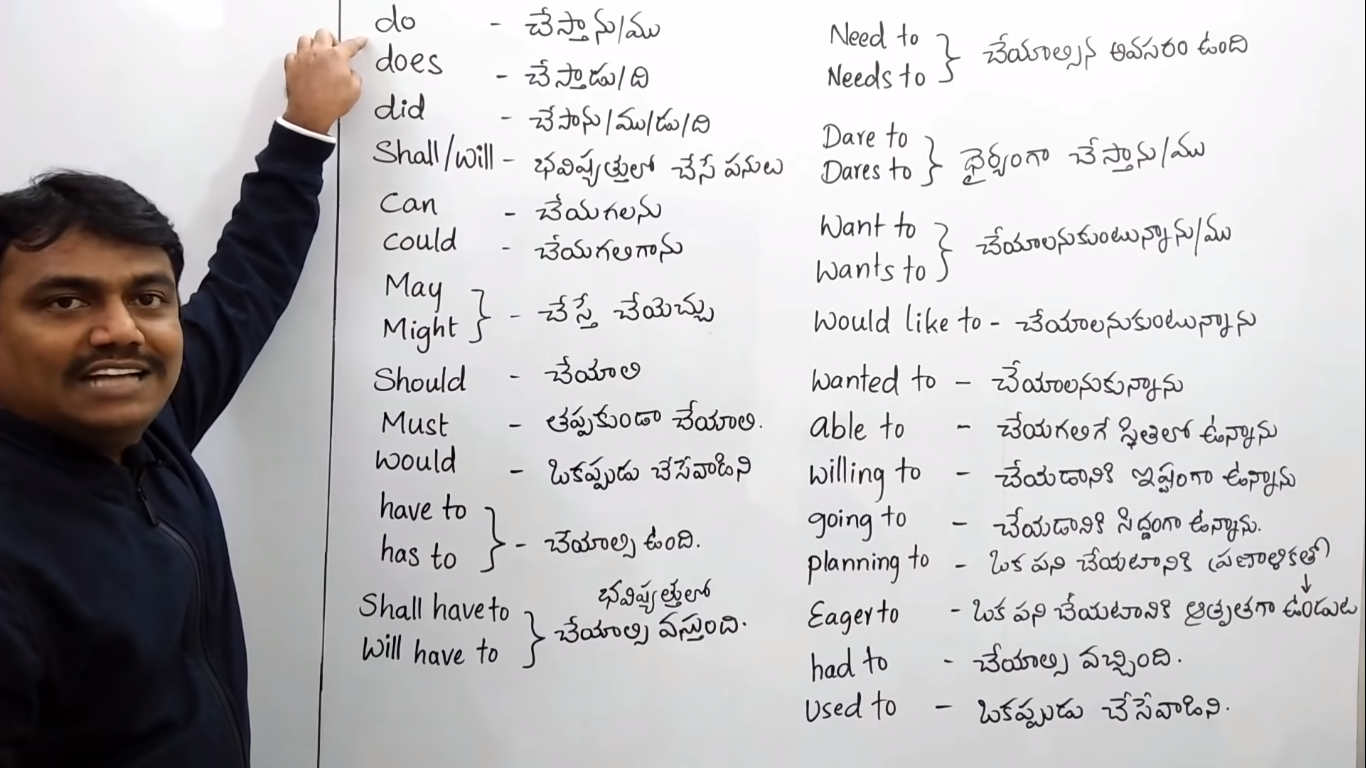 do - చేస్తాను/ము
does - చేస్తాడు/ది
did - చేసాను/ము/డు/ది
Shall/will - భవిష్యత్తులో చేసే పనులు
Can - చేయగలను
could - చేయగలిగాను
May
Might } - చేస్తే చేయొచ్చు
Should - చేయాలి
Must - తప్పకుండా చేయాలి.
would - ఒకప్పుడు చేసేవాడిని
have to
has to } - చేయాల్సి ఉంది.
Shall have to
Will have to } భవిష్యత్తులో
చేయాల్సి వస్తుంది.
Need to
Needs to } చేయాల్సిన అవసరం ఉంది
Dare to
Dares to } ధైర్యంగా చేస్తాను/ము
Want to
Wants to } చేయాలనుకుంటున్నాను/ము
Would like to - చేయాలనుకుంటున్నాను
Wanted to - చేయాలనుకున్నాను
able to - చేయగలిగే స్థితిలో ఉన్నాను
willing to - చేయడానికి ఇష్టంగా ఉన్నాను
going to - చేయడానికి సిద్దంగా ఉన్నాను.
planning to - ఒక పని చేయటానికి ప్రణాళికతో
↓
Eager to - ఒక పని చేయటానికి ఆతృతగా ఉండుట
had to - చేయాల్సి వచ్చింది.
Used to - ఒకప్పుడు చేసేవాడిని.